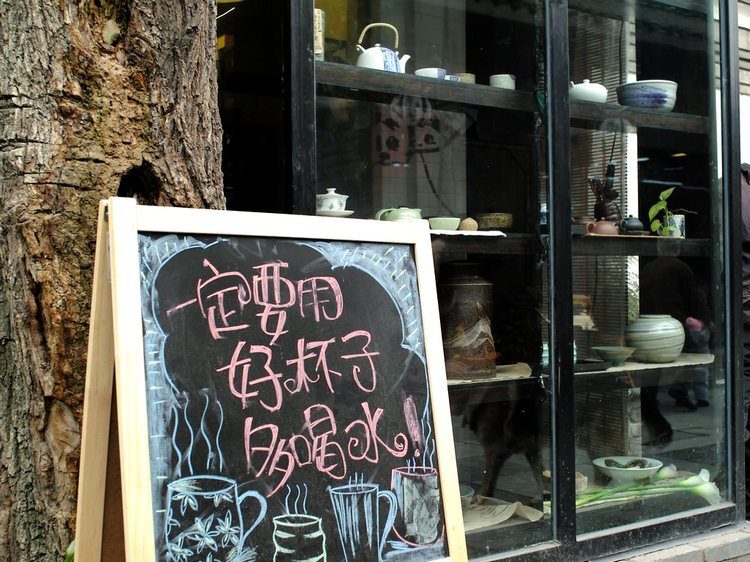 一定要用
好杯子
多喝水!